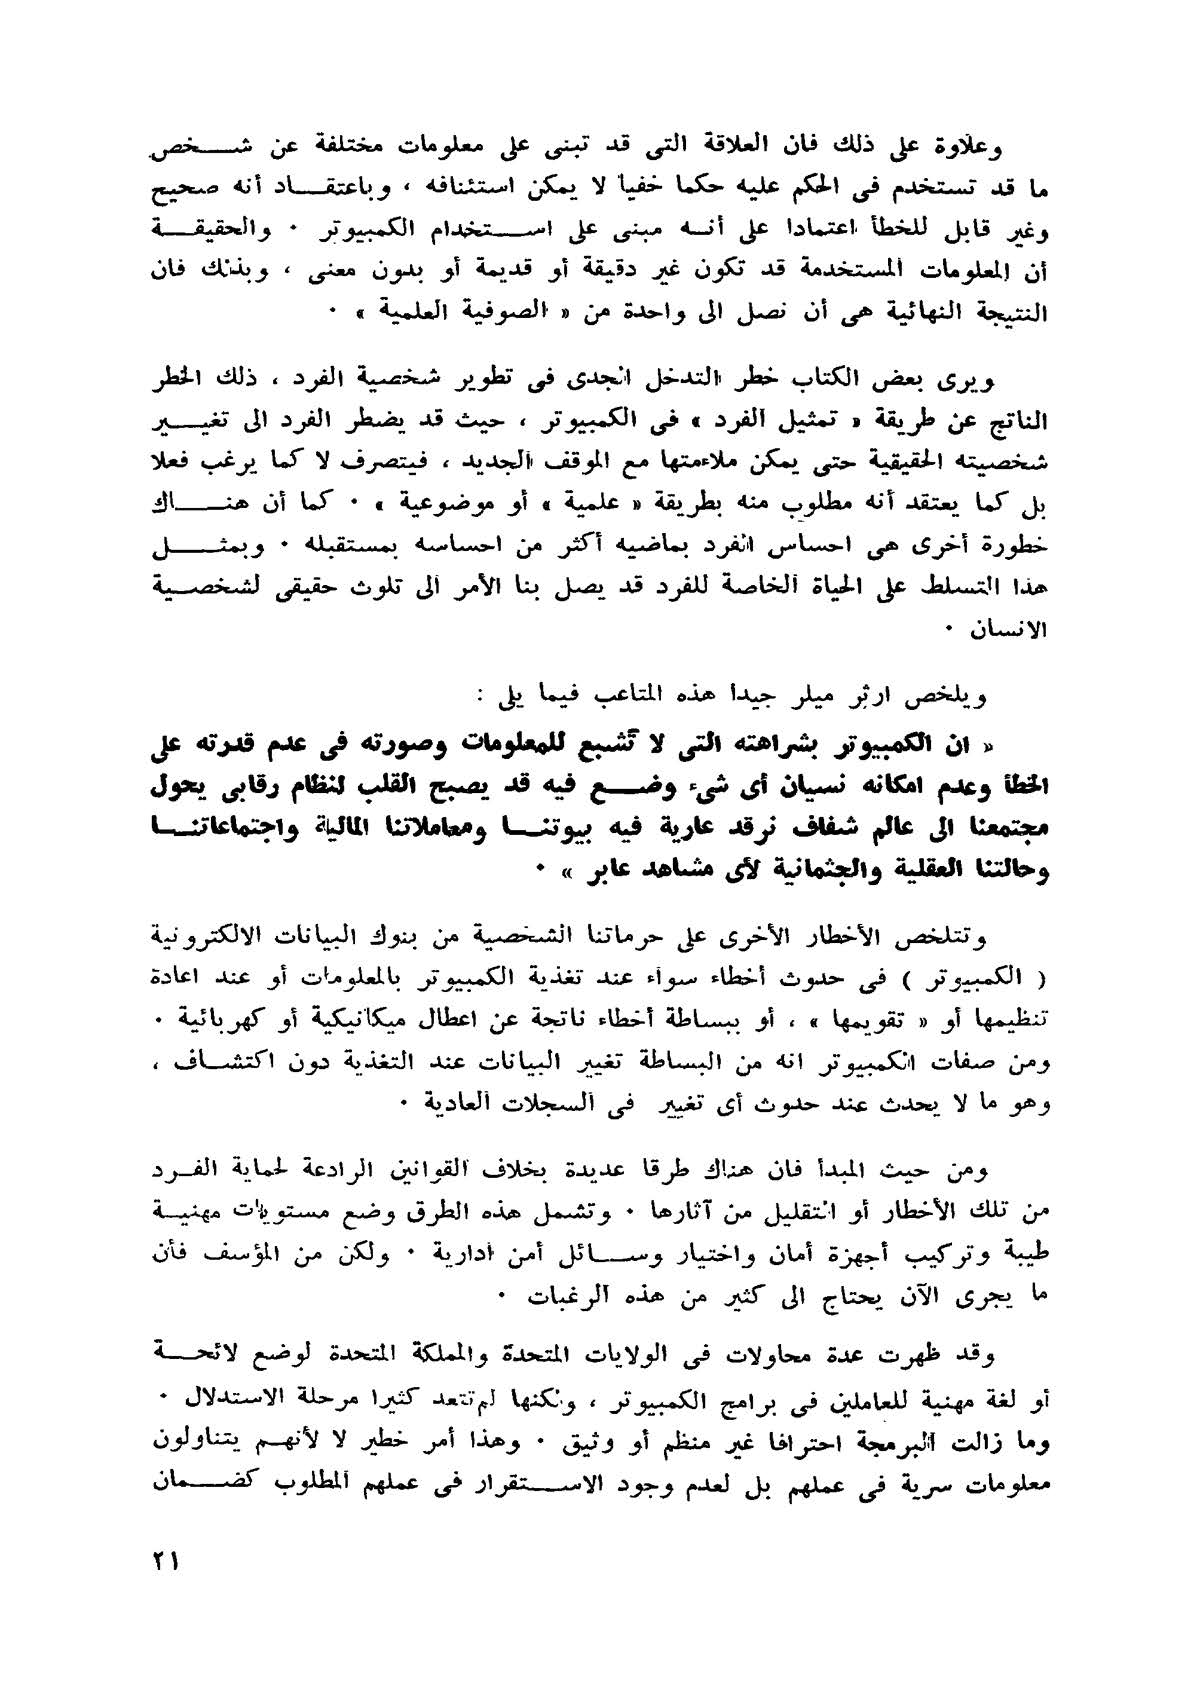 وعلاوة على ذلك فان العلاقة التى قد تبنى على معلومات مختلفة عن شخص
ما قد تستخدم فى الحكم عليه حكما خفيا لا يمكن استئنافه ، وباعتقاد أنه صحيح
وغير قابل للخطأ اعتمادا على أنه مبنى على استخدام الكمبيوتر . والحقيقة
أن المعلومات المستخدمة قد تكون غير دقيقة أو قديمة أو بدون معنى ، وبذلك فان
النتيجة النهائية هى أن نصل الى واحدة من « الصوفية العلمية » .
ويرى بعض الكتاب خطر التدخل الجدى فى تطوير شخصية الفرد ، ذلك الخطر
الناتج عن طريقة « تمثيل الفرد » فى الكمبيوتر ، حيث قد يضطر الفرد الى تغيير
شخصيته الحقيقية حتى يمكن ملاءمتها مع الموقف الجديد ، فيتصرف لا كما يرغب فعلا
بل كما يعتقد أنه مطلوب منه بطريقة « علمية » أو موضوعية » . كما أن هناك
خطورة أخرى هى احساس الفرد بماضيه أكثر من احساسه بمستقبله . وبمثل
هذا التسلط على الحياة الخاصة للفرد قد يصل بنا الأمر الى تلوث حقيقى لشخصية
الانسان .
ويلخص ارثر ميلر جيدا هذه المتاعب فيما يلى :
« ان الكمبيوتر بشراهته التى لا تشبع للمعلومات وصورته فى عدم قدرته على
الخطأ وعدم امكانه نسيان أى شىء وضع فيه قد يصبح القلب لنظام رقابى يحول
مجتمعنا الى عالم شفاف نرقد عارية فيه بيوتنا ومعاملاتنا المالية واجتماعاتنا
وحالتنا العقلية والجثمانية لأى مشاهد عابر » .
وتتلخص الأخطار الأخرى على حرماتنا الشخصية من بنوك البيانات الالكترونية
( الكمبيوتر ) فى حدوث أخطاء سواء عند تغذية الكمبيوتر بالمعلومات أو عند اعادة
تنظيمها أو « تقويمها » ، أو ببساطة أخطاء ناتجة عن اعطال ميكانيكية أو كهربائية .
ومن صفات الكمبيوتر انه من البساطة تغيير البيانات عند التغذية دون اكتشاف ،
وهو ما لا يحدث عند حدوث أى تغيير فى السجلات العادية .
ومن حيث المبدأ فان هناك طرقا عديدة بخلاف القوانين الرادعة لحماية الفرد
من تلك الأخطار أو التقليل من آثارها . وتشمل هذه الطرق وضع مستويات مهنية
طيبة وتركيب أجهزة أمان واختيار وسائل أمن ادارية . ولكن من المؤسف فأن
ما يجرى الآن يحتاج الى كثير من هذه الرغبات .
وقد ظهرت عدة محاولات فى الولايات المتحدة والمملكة المتحدة لوضع لائحة
أو لغة مهنية للعاملين فى برامج الكمبيوتر ، ولكنها لم تتعد كثيرا مرحلة الاستدلال .
وما زالت البرمجة احترافا غير منظم أو وثيق . وهذا أمر خطير لا لأنهم يتناولون
معلومات سرية فى عملهم بل لعدم وجود الاستقرار فى عملهم المطلوب كضمان
٢١